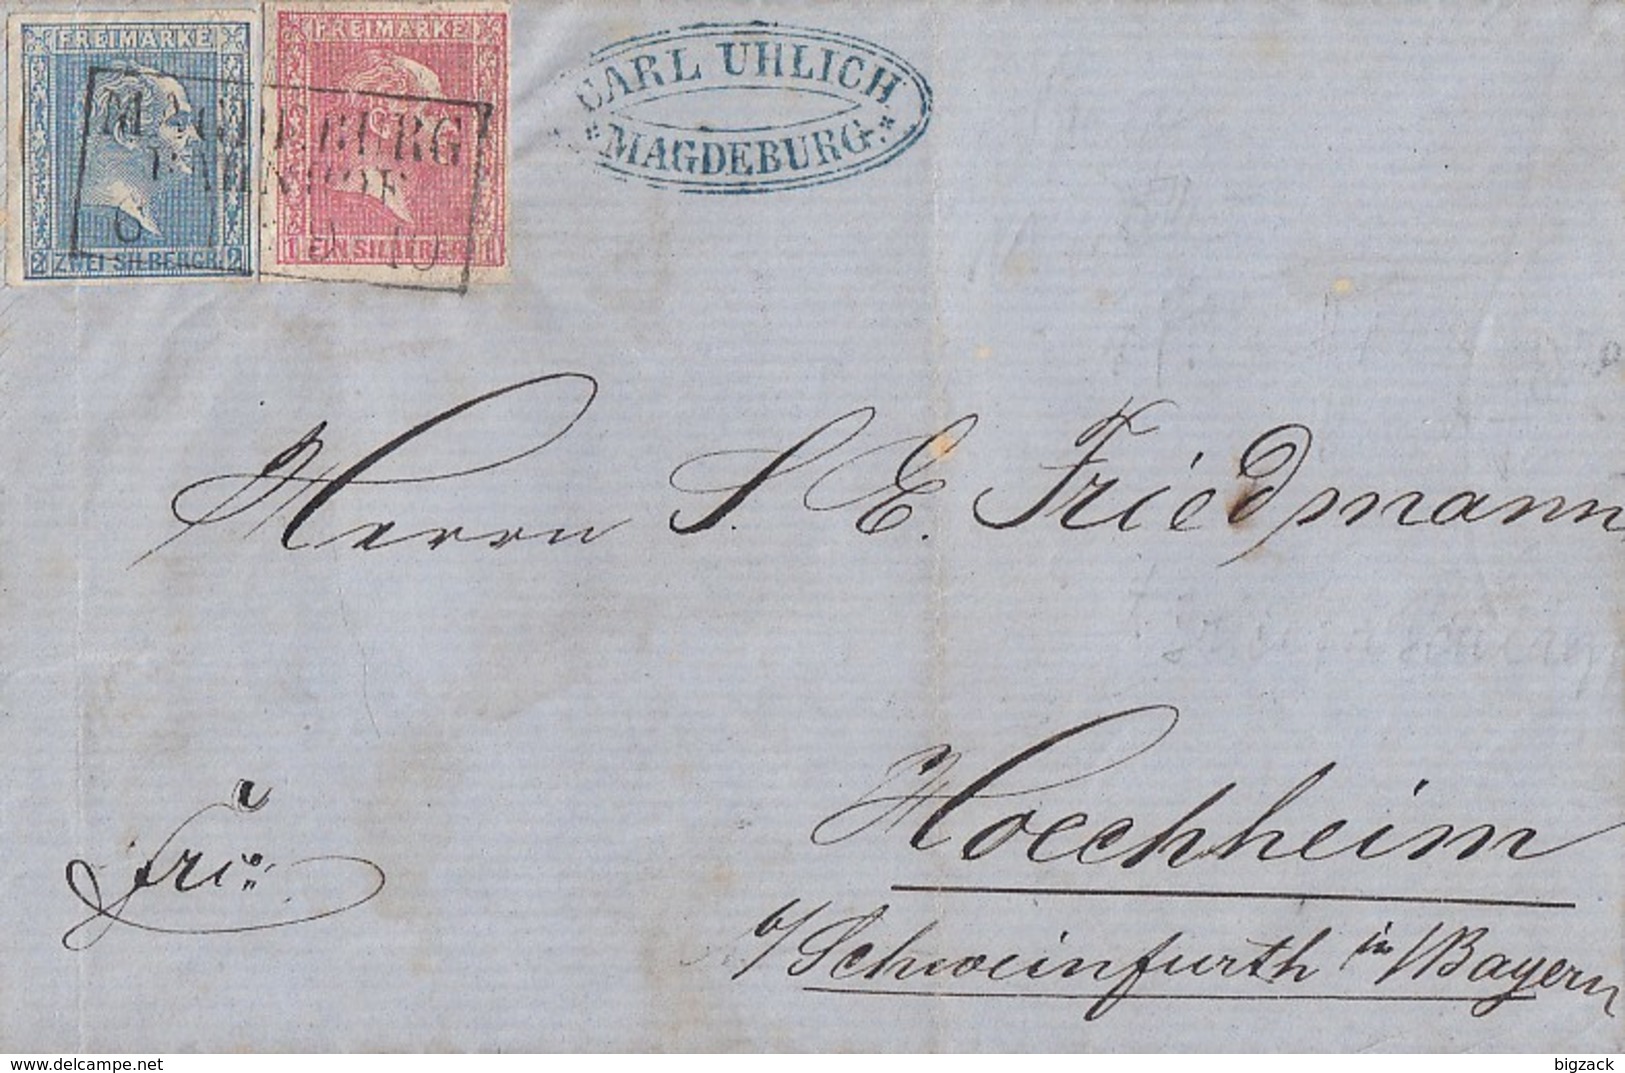 FREIMARKE
2 ZWEI SILBERGR. 2
FREIMARKE
1 EIN SILBERGR. 1
MAGDEBURG
BAHNHOF
CARL UHLICH
MAGDEBURG.
Herrn S. E. Friedmann
Hoechheim
b/Schweinfurth in/Bayern
Frco
delcampe.net
bigzack